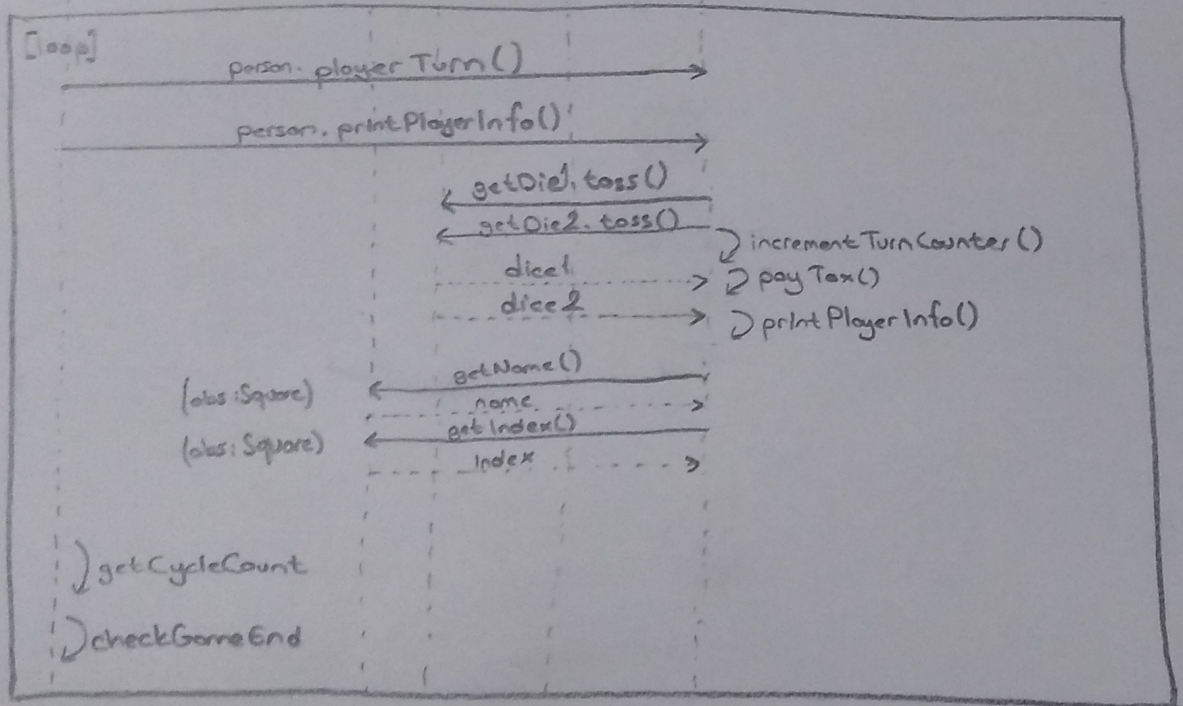 [loop]
person.playerTurn()
person.printPlayerInfo()
getDie1.toss()
getDie2.toss()
incrementTurnCounter()
dice1
payTax()
dice2
printPlayerInfo()
getName()
(obs:Square)
name
getIndex()
(obs:Square)
Index
getCycleCount
checkGameEnd